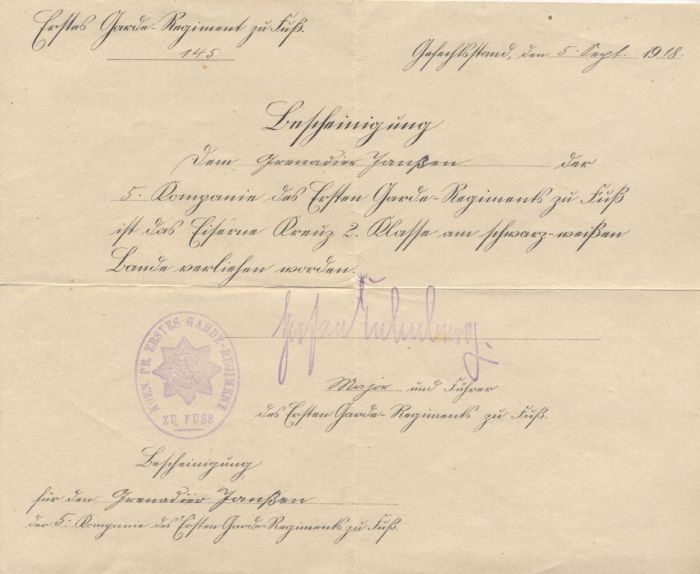 Erstes Garde-Regiment zu Fuß.
145.
Gefechtsstand, den 5. Sept. 1918.
Bescheinigung
Dem Grenadier Janßen der
5. Kompanie des Ersten Garde-Regiments zu Fuß
ist das Eiserne Kreuz 2. Klasse am schwarz-weißen
Bande verliehen worden.
Eulenburg.
KOEN. PR. ERSTES GARDE-REGIMENT
ZU FUSS
Major und Führer
des Ersten Garde-Regiments zu Fuß.
Bescheinigung
für den Grenadier Janßen
der 5. Kompanie des Ersten Garde-Regiments zu Fuß.